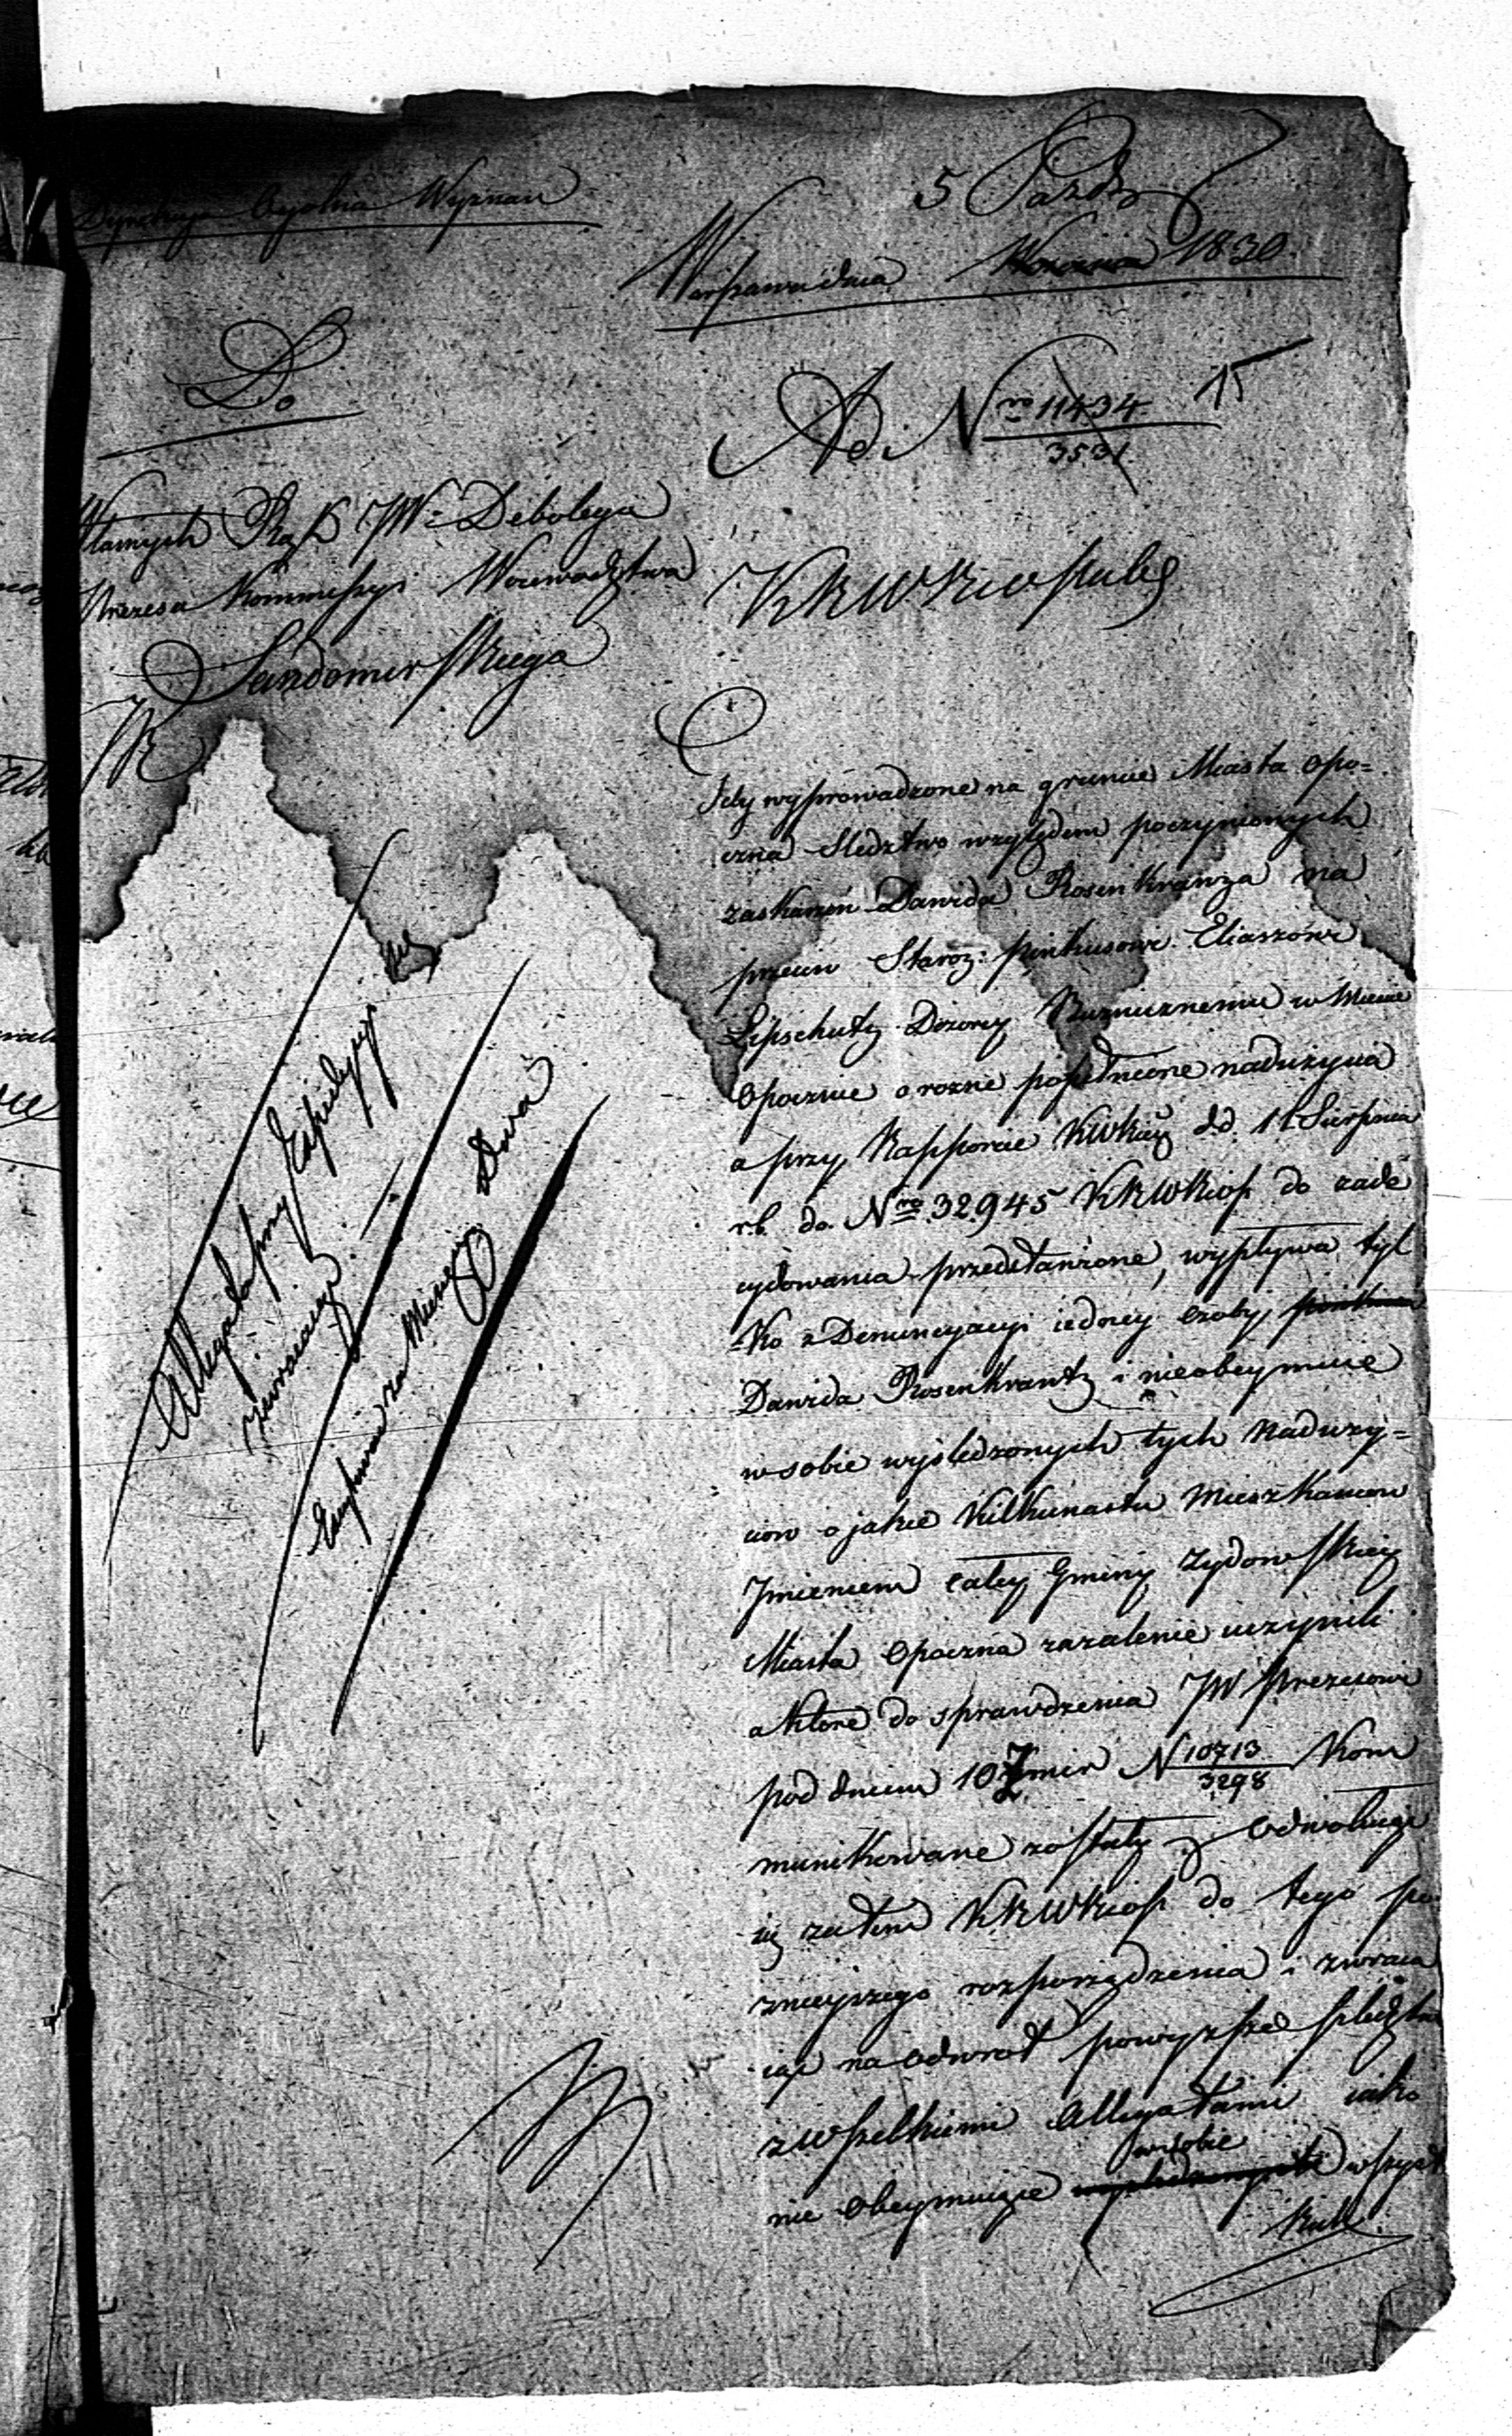 Dyrekcya Ogolna Wyznan
5 Pazdr
Warszawa dnia Wrzesnia 1830.
Do
Ad Nro 11434
3531
15
Własnych Rąk JW: Debolego
Prezesa Kommissyi Woiewodztwa
Sandomirskiego
KRWRiOPubl
Gdy wyprowadzone na gruncie Miasta Opo=
czna Sledztwo względem poczynionych
zaskarzeń Dawida Rosenkranza na
przeciw Staroz: Pinkusowi Eliaszowi
Lipschutz Dozorcy Bożnicznemu w Miescie
Opocznie o rozne popełnione nadużycia
a przy Rapporcie KWkiey d.d. 11 Sierpnia
r.b. do Nro 32,945 KRWRiOP do zade
cydowania przedstawione, wypływa tyl
=ko z Denuncyacyi iedney osoby
Dawida Rosenkrantz i nieobeymuie
w sobie wyśledzonych tych Naduży=
ciow o jakie Kilkunastu Mieszkancow
Jmieniem całey Gminy Zydowskiey
Miasta Opoczna zażalenie uczynili
a które do sprawdzenia JW Prezesowi
pod dniem 10 7mbr N 10713 Kom
3298
munikowane zostały, Odwołuiąc
się zatem KRWRiOP do tego po
znieyszego rozporządzenia i zwraca
iąc na odwrot powyższe Sledztwo
z wszelkiemi Allegatami iako
nie obeymuiące wszyst
w sobie
kich
Allegata przy Expedycyi
zwracaią
Expedycya za Mun Dwa